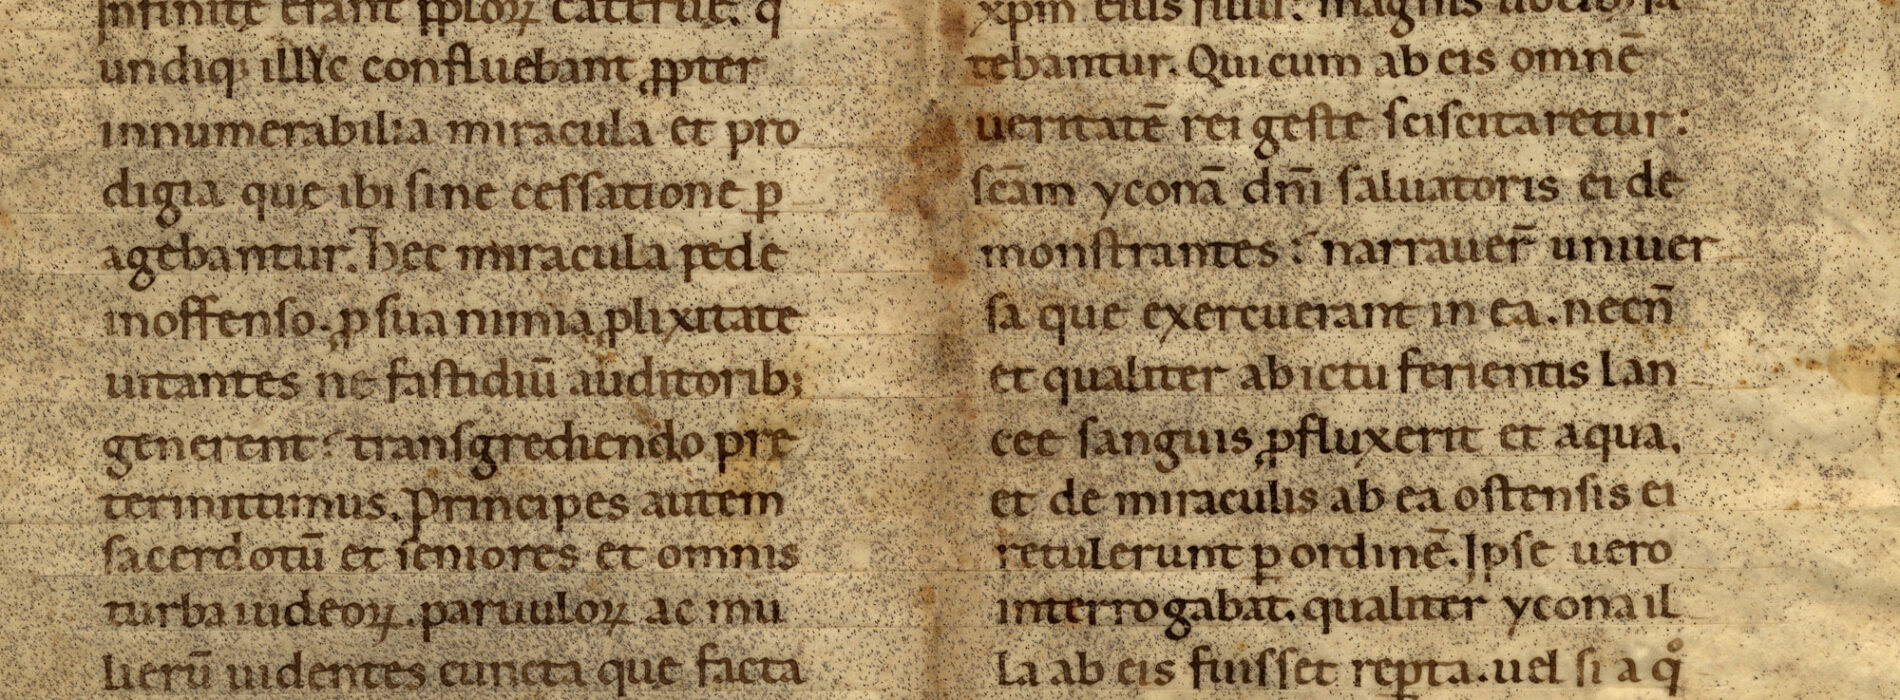 infinitę erant ꝓploꝝ cateruę. q̇
undiqꝫ illic confluebant ꝓpter
innumerabilia miracula et pro
digia quę ibi sine cessatione ꝑ
agebantur. Hec miracula pede
inoffenso. ꝓ sua nimia ꝓlixitate
uitantes ne fastidiū auditoribꝫ
generent: transgrediendo pre
termittimus. Principes autem
sacerdotū et seniores et omnis
turba iudeoꝝ. paruuloꝝ ac mu
lierū uidentes cuncta quę facta
xp̄m eius filiū: magnis uocibꝫ fa
tebantur. Qui cum ab eis omnē
ueritatē rei geste sciscitaretur:
sc̄am yconā dn̄i saluatoris ei de
monstrantes: narrauer̄ uniuer
sa que exercuerant in ea. necn̄
et qualiter ab ictu ferientis lan
cee sanguis ꝓfluxerit et aqua.
et de miraculis ab ea ostensis ei
retulerunt ꝑ ordinē. Ipse uero
interrogabat. qualiter ycona il
la ab eis fuisset reꝑta. uel si a qͦ